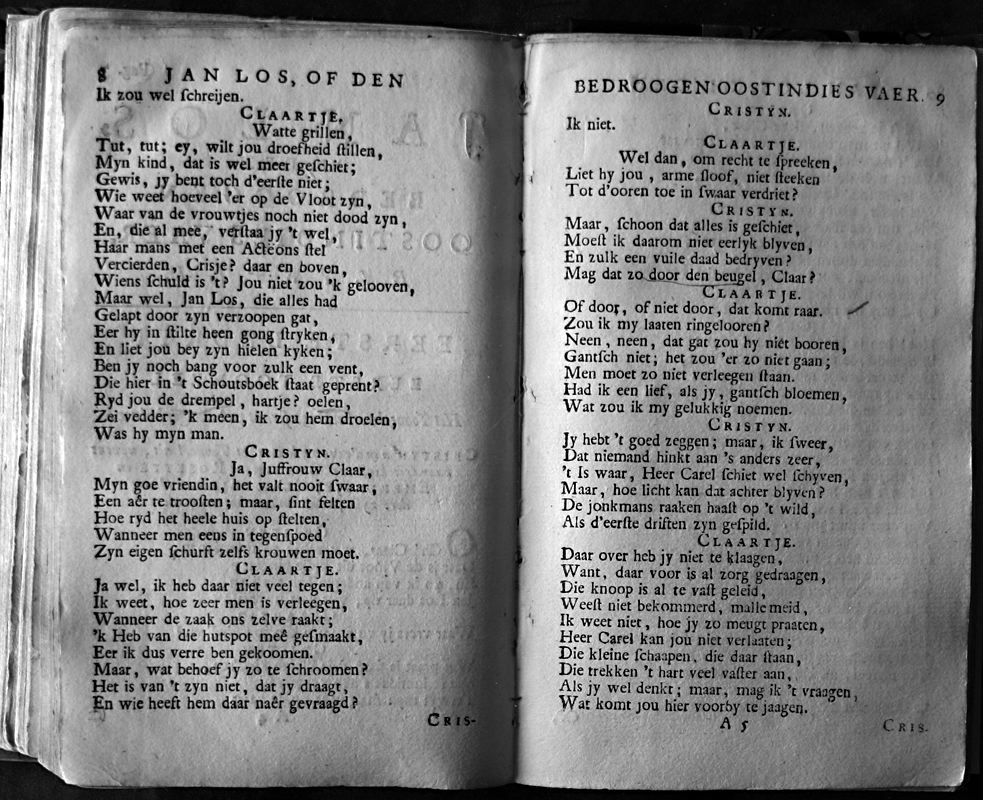 8 JAN LOS, OF DEN
Ik zou wel ſchreijen.
CLAARTJE.
Watte grillen,
Tut, tut; ey, wilt jou droefheid ſtillen,
Myn kind, dat is wel meer geſchiet;
Gewis, jy bent toch d'eerſte niet;
Wie weet hoeveel 'er op de Vloot zyn,
Waar van de vrouwtjes noch niet dood zyn,
En, die al mee, verſtaa jy 't wel,
Haar mans met een Acteöns ſtel
Vercierden, Crisje? daar en boven,
Wiens ſchuld is 't? Jou niet zou 'k gelooven,
Maar wel, Jan Los, die alles had
Gelapt door zyn verzoopen gat,
Eer hy in ſtilte heen gong ſtryken,
En liet jou bey zyn hielen kyken;
Ben jy noch bang voor zulk een vent,
Die hier in 't Schoutsboek ſtaat geprent?
Ryd jou de drempel, hartje? oelen,
Zei vedder; 'k meen, ik zou hem droelen,
Was hy myn man.
CRISTYN.
Ja, Juffrouw Claar,
Myn goe vriendin, het valt nooit ſwaar,
Een aêr te trooſten; maar, ſint felten
Hoe ryd het heele huis op ſtelten,
Wanneer men eens in tegenſpoed
Zyn eigen ſchurft zelfs krouwen moet.
CLAARTJE.
Ja wel, ik heb daar niet veel tegen;
Ik weet, hoe zeer men is verleegen,
Wanneer de zaak ons zelve raakt;
'k Heb van die hutspot meê geſmaakt,
Eer ik dus verre ben gekoomen.
Maar, wat behoef jy zo te ſchroomen?
Het is van 't zyn niet, dat jy draagt,
En wie heeft hem daar naêr gevraagd?
CRIS-
BEDROOGEN OOSTINDIES VAER. 9
CRISTYN.
Ik niet.
CLAARTJE.
Wel dan, om recht te ſpreeken,
Liet hy jou, arme ſloof, niet ſteeken
Tot d'ooren toe in ſwaar verdriet?
CRISTYN.
Maar, ſchoon dat alles is geſchiet,
Moeſt ik daarom niet eerlyk blyven,
En zulk een vuile daad bedryven?
Mag dat zo door den beugel, Claar?
CLAARTJE.
Of door, of niet door, dat komt raar.
Zou ik my laaten ringelooren?
Neen, neen, dat gat zou hy niet booren,
Gantſch niet; het zou 'er zo niet gaan;
Men moet zo niet verleegen ſtaan.
Had ik een lief, als jy, gantſch bloemen,
Wat zou ik my gelukkig noemen.
CRISTYN.
Jy hebt 't goed zeggen; maar, ik ſweer,
Dat niemand hinkt aan 's anders zeer,
't Is waar, Heer Carel ſchiet wel ſchyven,
Maar, hoe licht kan dat achter blyven?
De jonkmans raaken haaſt op 't wild,
Als d'eerſte driften zyn geſpild.
CLAARTJE.
Daar over heb jy niet te klaagen,
Want, daar voor is al zorg gedraagen,
Die knoop is al te vaſt geleid,
Weeſt niet bekommerd, malle meid,
Ik weet niet, hoe jy zo meugt praaten,
Heer Carel kan jou niet verlaaten;
Die kleine ſchaapen, die daar ſtaan,
Die trekken 't hart veel vaſter aan,
Als jy wel denkt; maar, mag ik 't vraagen,
Wat komt jou hier voorby te jaagen.
A 5 CRIS-